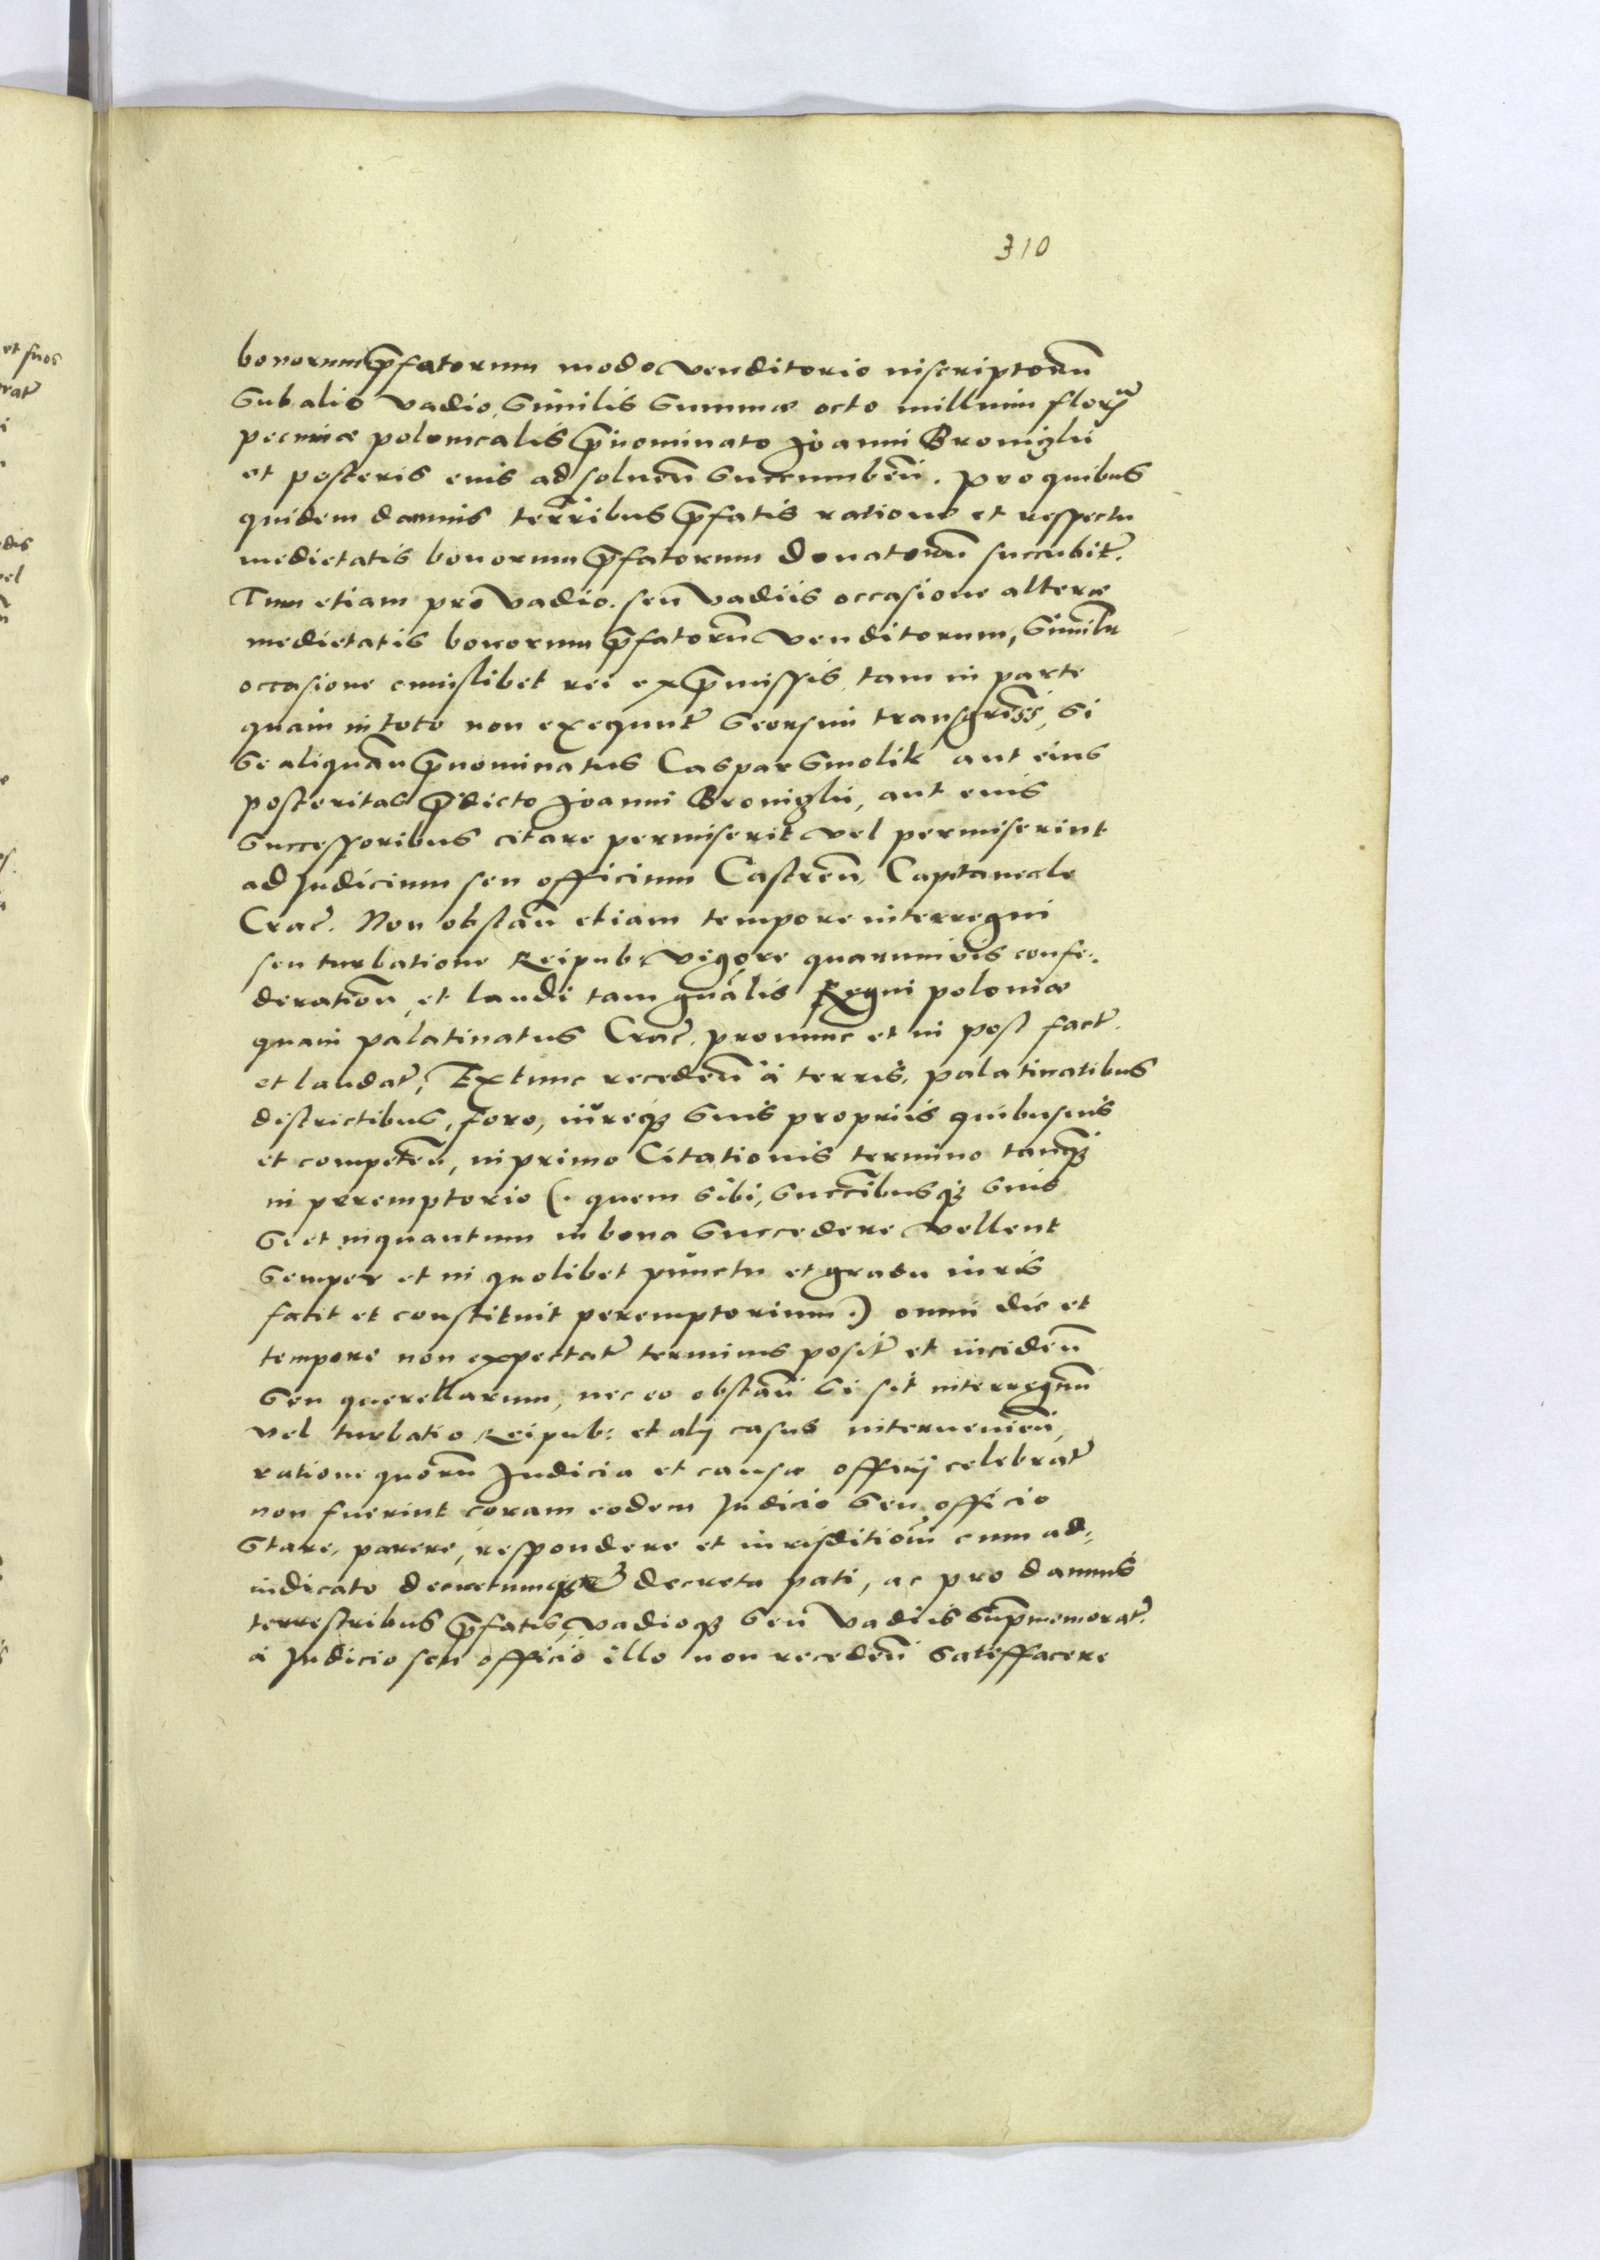 310
bonorum p̃fatorum modo venditorio inscriptorũ
sub alio vadio, similis summæ octo millium florẽ
pecuniæ polonicalis p̃nominato Joanni Broniglii
et posteris eius ad soluen̄ succumben̄. pro quibus
quidem damnis terr̃ribus p̃fatis ratione et respectu
medietatis bonorum p̃fatorum donatorũ succubit̃.
Tum etiam pro vadio. seu vadiis occasione alteræ
medietatis bonorum p̃fatorũ venditorum, simil̃r
occasione cuiuslibet rei ex p̃missis, tam in parte
quam in toto non exequut̃ seorsim transgriss̃, si
se aliquãn p̃nominatus Caspar Smolik aut eius
posteritas p̃dicto Joanni Broniglii, aut eius
successoribus citare permiserit vel permiserint
ad Judicium seu officium Castren̄, Capitaneale
Crac̃. Non obstan̄ etiam tempore interregni
seu turbatione Reipub: vigore quarumvis confe:
deration̄, et laudi tam gñalis Regni poloniæ
quam palatinatus Crac̃. pronunc et in post fact̃.
et laudat̃, Extunc receden̄ à terris, palatinatibus
districtibus, foro, iureq3 suis propriis quibusuis
et competen̄, in primo Citationis termino tanq̃3
in peremptorio (. quem sibi, succ̃ribusq3 suis
se et inquantum in bona succedere vellent
semper et in quolibet punctu et gradu iuris
facit et constituit peremptorium.) omni die et
tempore non expectat̃ terminis posit̃ et inciden̄
seu querellarum, nec eo obstan̄ si sit interregnũ
vel turbatio Reipub: et alij casus internenien̄,
ratione quorũ Judicia et causæ officij celebrat̃
non fuerint coram eodem Judicio seu officio
stare, parere, respondere et iurisditioñi cum ad:
iudicato decretumq3 decreta pati, ac pro damnis
terrestribus p̃fatis, vadioq3 seu vadiis sup̃memorat̃.
à Judicio seu officio illo non receden̄ satisfacere